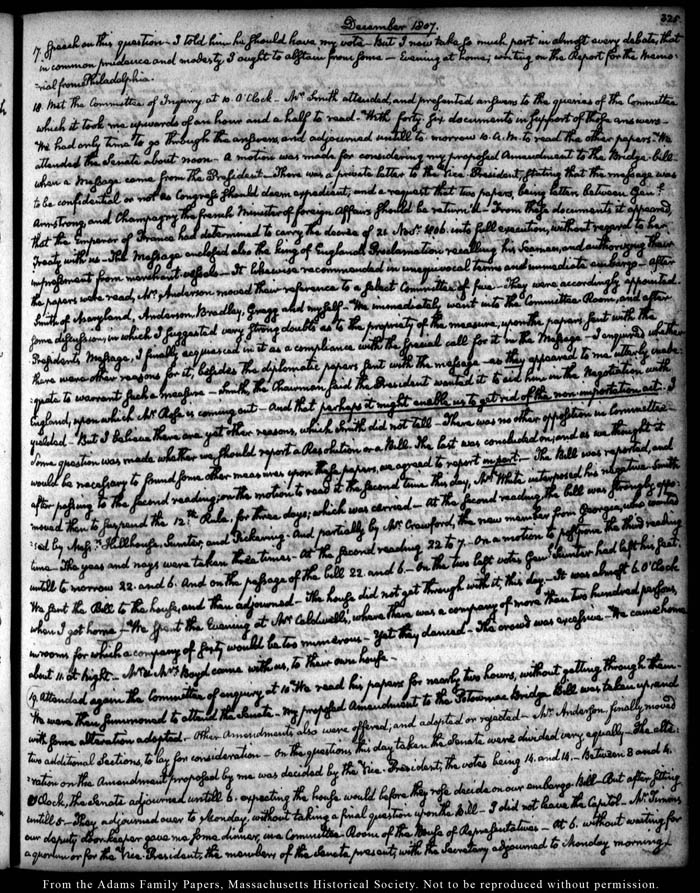 325.
December 1807.
17. Speech on this question—I told him he should have my vote—But I now take so much part in almost every debate, that
in common prudence and modesty I ought to abstain from some—Evening at home; writing on the Report for the Memo-
-rial from Philadelphia.
18. Met the Committee of Inquiry at 10 O'Clock—Mr. Smith attended, and presented answers to the queries of the Committee
which it took me upwards of an hour and a half to read—With forty-six documents in support of those answers—
We had only time to go through the answers, and adjourned untill to-morrow 10. A.M. to read the other papers—We
attended the Senate about noon—A motion was made for considering my proposed Amendment to the Bridge-bill—
when a Message came from the President—There was a private letter to the Vice-President, stating that the message was
to be confidential or not as Congress should deem expedient, and a request that two papers, being letters between Genl.
Armstrong and Champagny the french Minister of foreign Affairs should be return'd—From these documents it appeared,
that the Emperor of France had determined to carry the decree of 21 Novr. 1806. into full execution, without regard to her
Treaty with us—The Message enclosed also the king of England's Proclamation recalling his Seamen, and authorizing their
impressment from merchant-vessels—It likewise recommended in unequivocal terms and immediate embargo—After
the papers were read, Mr. Anderson moved their reference to a select Committee of five—They were accordingly appointed.
Smith of Maryland, Anderson, Bradley, Gragg and myself—We immediately went into the Committee-Room, and after
some discussion, in which I suggested very strong doubts as to the propriety of the measure, upon the papers sent with the
President's Message, I finally acquiesced in it as a compliance with the special call for it in the Message—I enquired whether
there were other reasons for it, besides the diplomatic papers sent with the message—as they appeared to me utterly inade-
-quate to warrant such a measure—Smith, the Chairman, said the President wanted it to aid him in the Negotiation with
England, upon which Mr. Rose is coming out—And that perhaps it might enable us to get rid of the non-importation act. I
yielded—But I believe there are yet other reasons, which Smith did not tell—There was no other opposition in Committee—
Some question was made whether we should report a Resolution or a Bill. The last was concluded on; and as we thought it
would be necessary to found some other measures upon these papers, we agreed to report in part—The Bill was reported, and
after passing to the second reading; on the motion to read it the second time this day, Mr. White interposed his negative—Smith
moved then to suspend the 12th. Rule. for three days; which was carried—At the second reading, the bill was strongly oppo-
-sed by Messrs. Hillhouse, Sumter, and Pickering—And partially by Mr. Crawford, the new member from Georgia, who wanted
time—The yeas and nays were taken three times—At the second reading 22 to 7.—On a motion to postpone the third reading
untill to-morrow 22. and 6. And on the passage of the bill 22 and 6—On the two last votes Genl. Sumter had left his seat.
We sent the Bill to the house, and then adjourned—The house did not get through with it, this day—It was almost 6. O'Clock
when I got home—We spent the Evening at Mrs. Caldwell's, where there was a company of more than two hundred persons,
in rooms for which a company of forty would be too numerous—Yet they danced—The crowd was excessive—We came home
about 11 at Night—Mr. & Mrs. Boyd came with us, to their own house.
19. Attended again the Committee of enquiry at 10. We read his papers for nearly two hours, without getting through them—
We were then summoned to attend the Senate—My proposed Amendment to the Potowmac Bridge Bill was taken up, and
with some alteration adopted. Other Amendments also were offered; and adopted or rejected—Mr. Anderson finally moved
two additional Sections, to lay for consideration—On the questions this day taken the Senate were divided very equally—The alte-
-ration on the Amendment proposed by me was decided by the Vice-President; the votes being 14. and 14.—Between 3 and 4.
O'Clock, the Senate adjourned untill 6. expecting the house would before they rose decide on our embargo Bill—But after sitting
untill 5—They adjourned over to Monday, without taking a final question upon the Bill—I did not leave the Capitol—Mr. Timms
our deputy doorkeeper gave me some dinner, in a Committee-Room of the House of Representatives—At 6. without waiting for
a quorum or for the Vice-President, the members of the Senate present, with the Secretary adjourned to Monday morning—
From the Adams Family Papers, Massachusetts Historical Society. Not to be reproduced without permission.